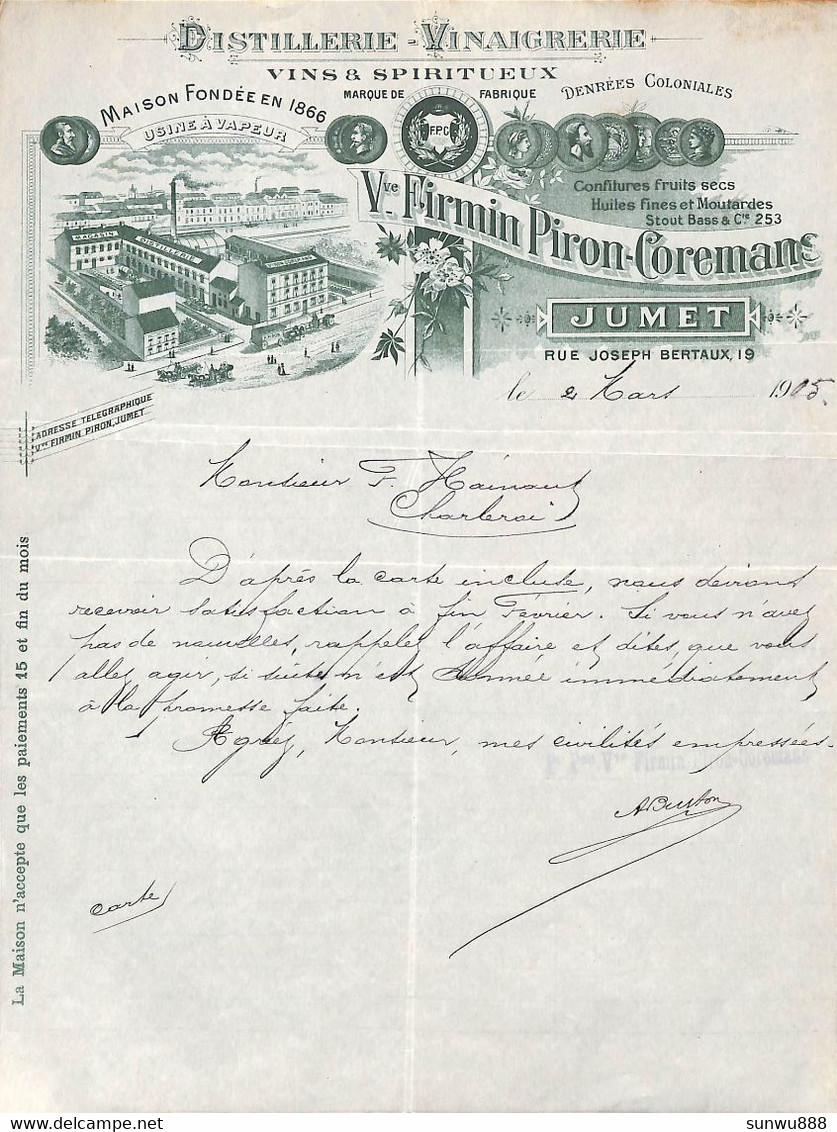 DISTILLERIE - VINAIGRERIE
VINS & SPIRITUEUX
MAISON FONDÉE EN 1866
USINE À VAPEUR
MARQUE DE FABRIQUE
DENRÉES COLONIALES
FPC
Confitures fruits secs
Huiles fines et Moutardes
Stout Bass & Cie 253
Vve Firmin Piron-Coremans
MAGASIN
DISTILLERIE
JUMET
RUE JOSEPH BERTAUX, 19
le 2 Mars 1905.
ADRESSE TÉLÉGRAPHIQUE
Vve FIRMIN PIRON, JUMET
Monsieur F. Hainaut
Charleroi
D'après la carte incluse, nous devions
recevoir satisfaction à fin Février. Si vous n'avez
pas de nouvelles, rappelez l'affaire et dites, que vous
allez agir, si suite n'est donnée immédiatement
à la promesse faite.
Agréez, Monsieur, mes civilités empressées.
Firmin Piron-Coremans
carte
La Maison n'accepte que les paiements 15 et fin du mois
sunwu888